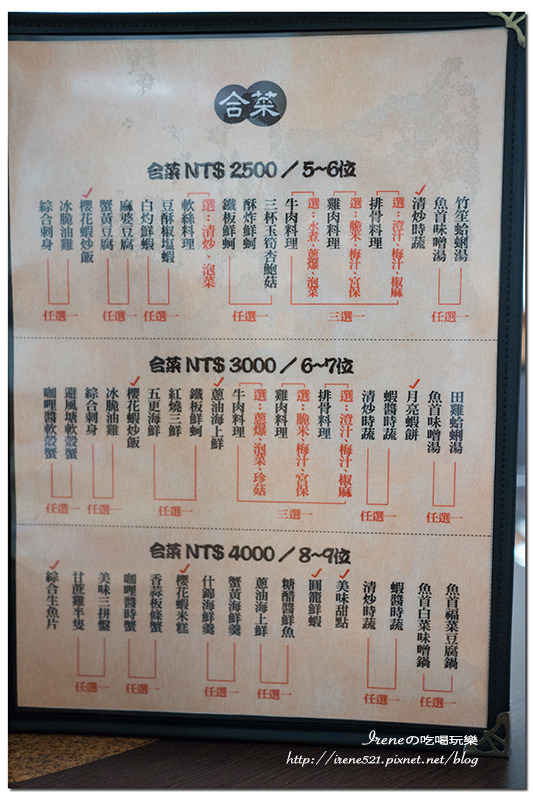 合菜
合菜 NT$ 2500 / 5~6位
竹笙蛤蜊湯
魚首味噌湯
任選一
✓清炒時蔬
選：澄汁、梅汁、椒麻
排骨料理
選：脆米、梅汁、宮保
雞肉料理
選：水煮、蔥爆、泡菜
牛肉料理
三選一
三杯玉筍杏鮑菇
酥炸鮮蚵
鐵板鮮蚵
任選一
選：清炒、泡菜
軟絲料理
豆酥椒塩蝦
白灼鮮蝦
任選一
麻婆豆腐
蟹黃豆腐
任選一
✓櫻花蝦炒飯
冰脆油雞
綜合刺身
任選一
合菜 NT$ 3000 / 6~7位
田雞蛤蜊湯
魚首味噌湯
任選一
✓月亮蝦餅
蝦醬時蔬
清炒時蔬
任選一
選：澄汁、梅汁、椒麻
排骨料理
選：脆米、梅汁、宮保
雞肉料理
選：蔥爆、泡菜、珍菇
牛肉料理
三選一
✓蔥油海上鮮
鐵板鮮蚵
紅燒三鮮
五更海鮮
任選一
✓櫻花蝦炒飯
冰脆油雞
綜合刺身
任選一
避風塘軟殼蟹
咖哩醬軟殼蟹
任選一
合菜 NT$ 4000 / 8~9位
魚首福菜豆腐鍋
魚首白菜味噌鍋
任選一
蝦醬時蔬
清炒時蔬
任選一
✓美味甜點
✓圓籠鮮蝦
糖醋醬鮮魚
蔥油海上鮮
任選一
蟹黃海鮮羹
什錦海鮮羹
任選一
✓櫻花蝦米糕
香蒜板條蟹
咖哩醬時蟹
任選一
美味三拼盤
甘蔗雞半隻
任選一
✓綜合生魚片
Ireneの吃喝玩樂
http://irene521.pixnet.net/blog